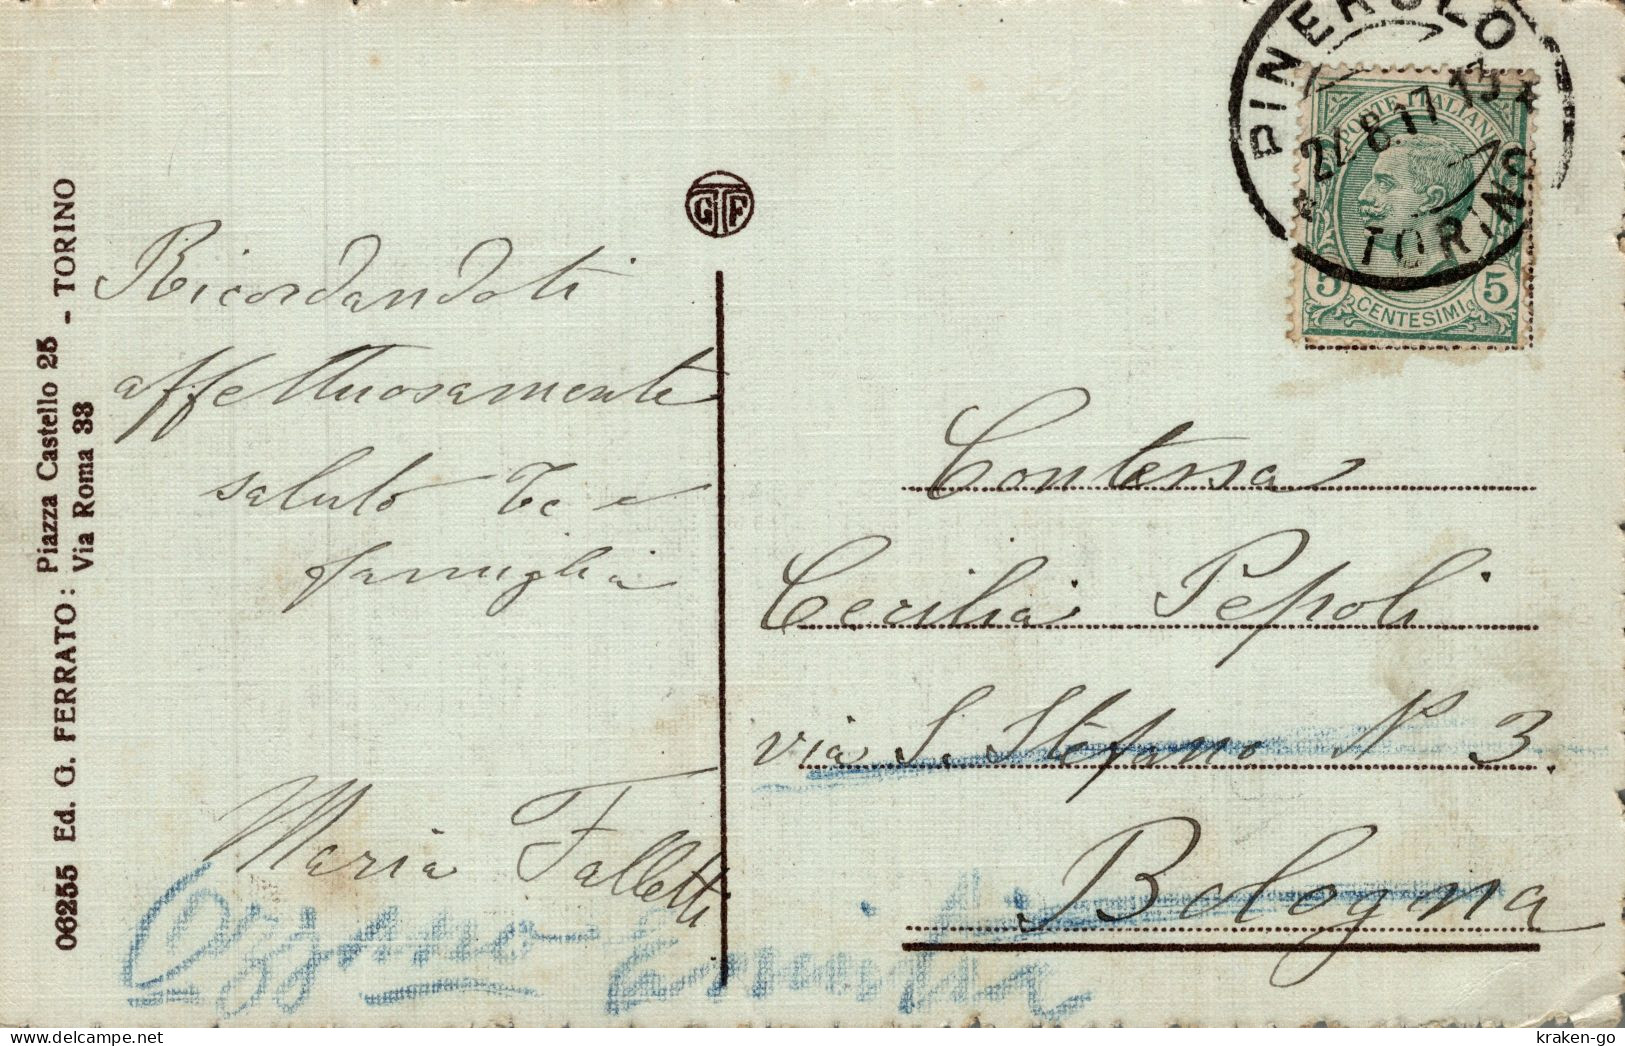 06255 Ed. G. FERRATO: Piazza Castello 25 - TORINO
Via Roma 33
GTF
Ricordandoti
affettuosamente
saluto Te e
famiglia
Maria Falletti
PINEROLO
24.8.17 13
TORINO
POSTE ITALIANE
5 CENTESIMI 5
Contessa
Cecilia Pepoli
via S. Stefano N° 3.
Bologna
kraken-go